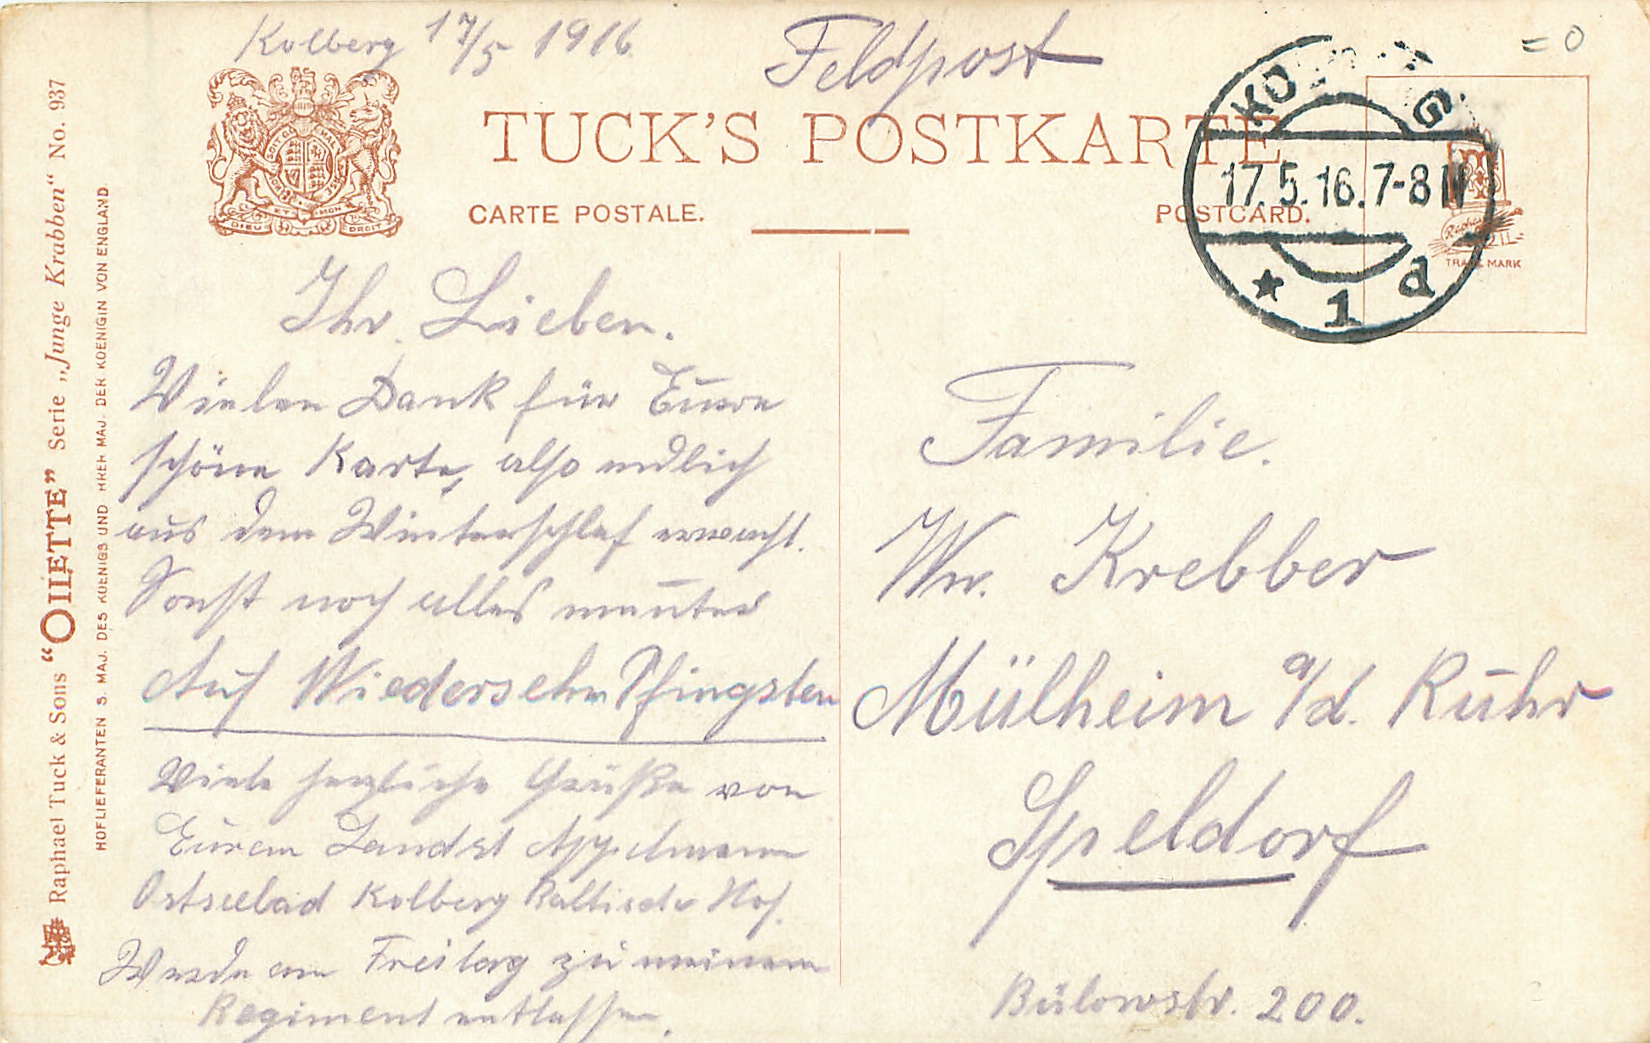 Kolberg 17/5 1916
Feldpost
= 0
TUCK'S POSTKARTE
CARTE POSTALE.
POSTCARD.
DIEU ET MON DROIT
KO G
17.5.16.7-8 N
* 1 d
TRADE MARK
Raphael Tuck & Sons “OILETTE” Serie „Junge Krabben“ No. 937
HOFLIEFERANTEN S. MAJ. DES KOENIGS UND IHRER MAJ. DER KOENIGIN VON ENGLAND
Ihr Lieben.
Vielen Dank für Eure
schöne Karte, also endlich
aus dem Winterschlaf erwacht.
Sonst noch alles munter
Auf Wiedersehn Pfingsten
Viele herzliche Grüße von
Eurem Landst Appelmann
Ostseebad Kolberg Baltischer Hof.
Werde am Freitag zu meinem
Regiment entlassen.
Familie.
Ww. Krebber
Mülheim a/d. Ruhr
Speldorf
Bülowstr. 200.